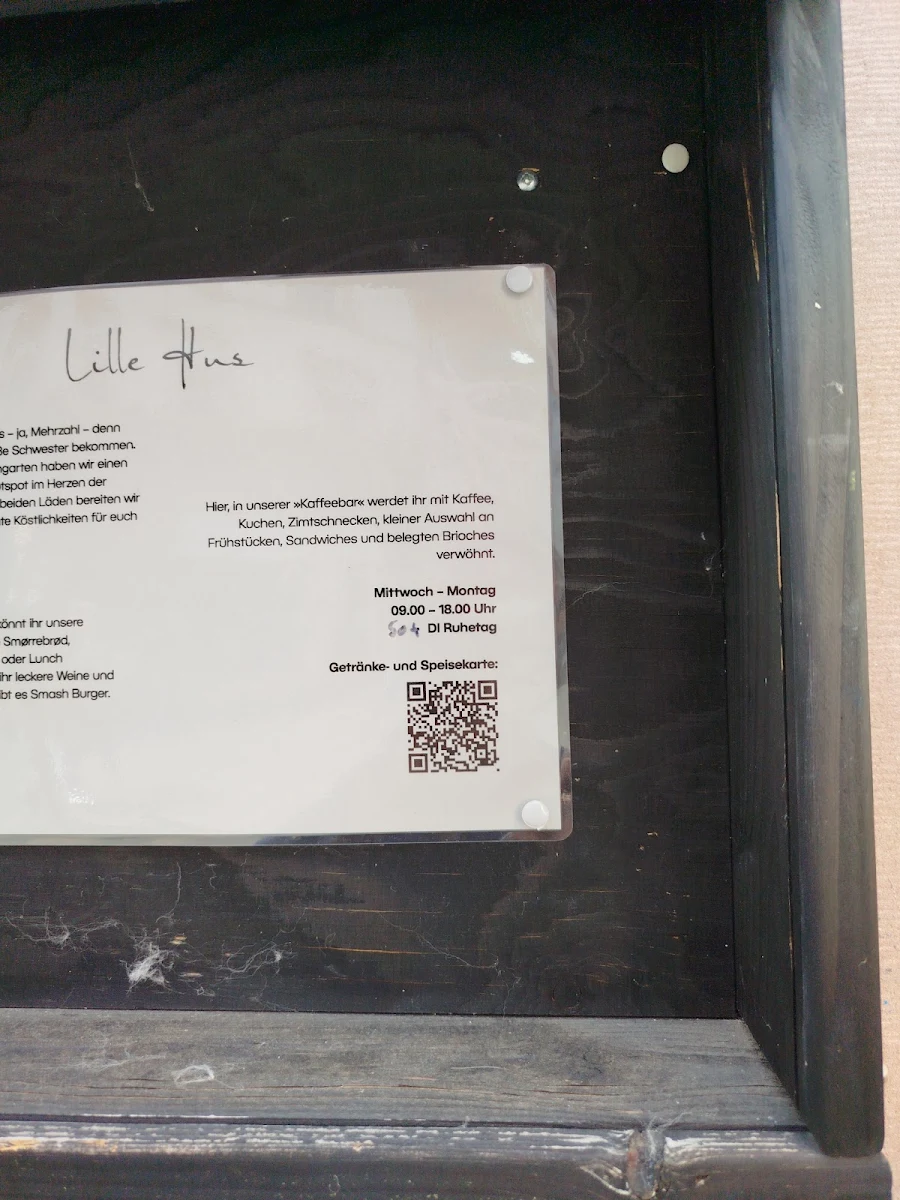 Lille Hus
s – ja, Mehrzahl – denn
ße Schwester bekommen.
ngarten haben wir einen
tspot im Herzen der
beiden Läden bereiten wir
te Köstlichkeiten für euch
könnt ihr unsere
Smørrebrød,
oder Lunch
ihr leckere Weine und
ibt es Smash Burger.
Hier, in unserer »Kaffeebar« werdet ihr mit Kaffee,
Kuchen, Zimtschnecken, kleiner Auswahl an
Frühstücken, Sandwiches und belegten Brioches
verwöhnt.
Mittwoch – Montag
09.00 – 18.00 Uhr
DI Ruhetag
Getränke- und Speisekarte: